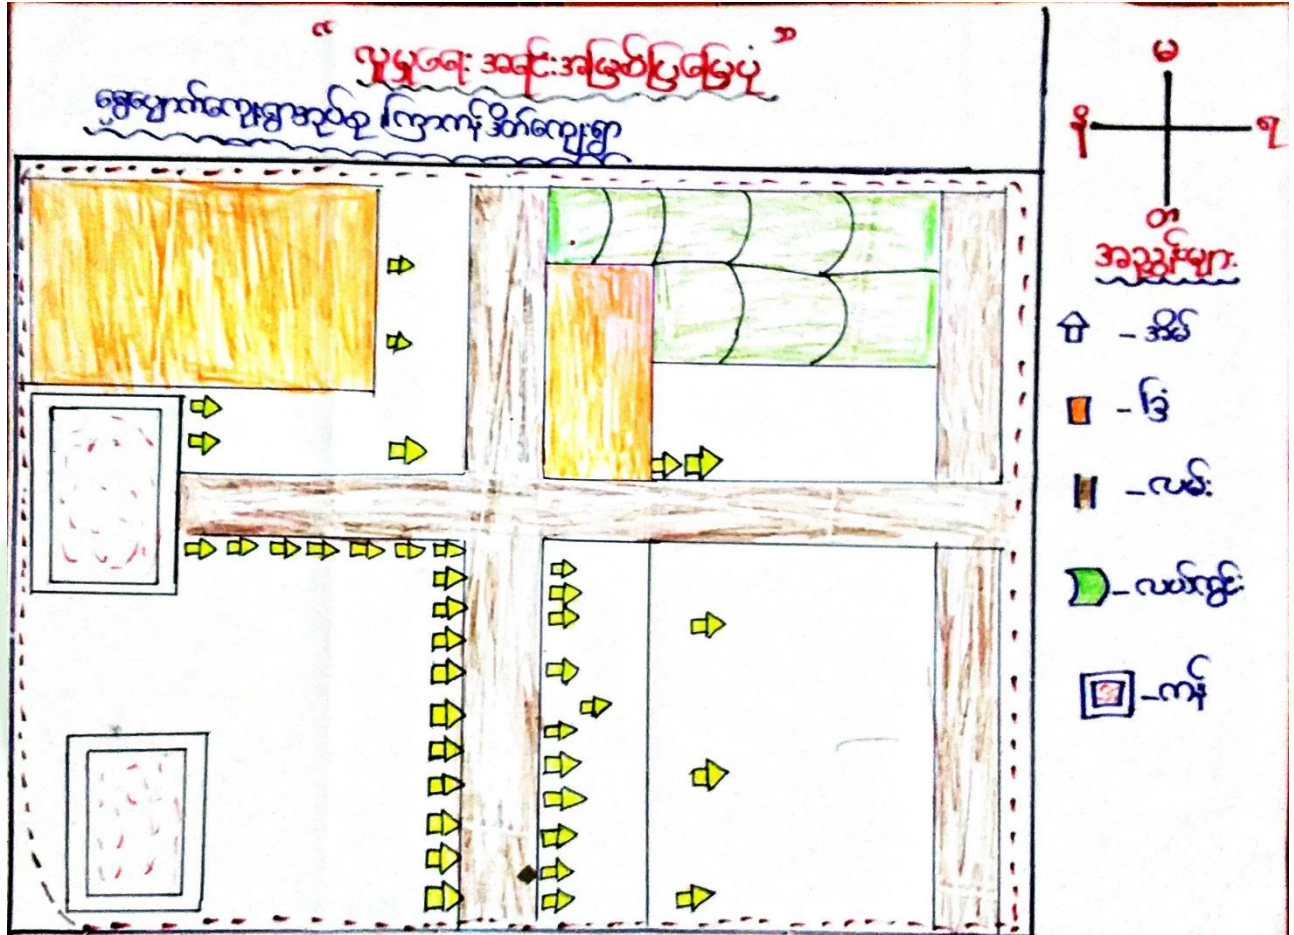 " လူမှုရေး အရင်းအမြစ်ပြမြေပုံ "
ရွှေပျောက်ကျေးရွာအုပ်စု၊ ကြာကန်ဒိတ်ကျေးရွာ
မ
နိ
ရ
တ
အညွှန်းများ
- အိမ်
- ခြံ
- လမ်း
- လယ်ကွင်း
- ကန်